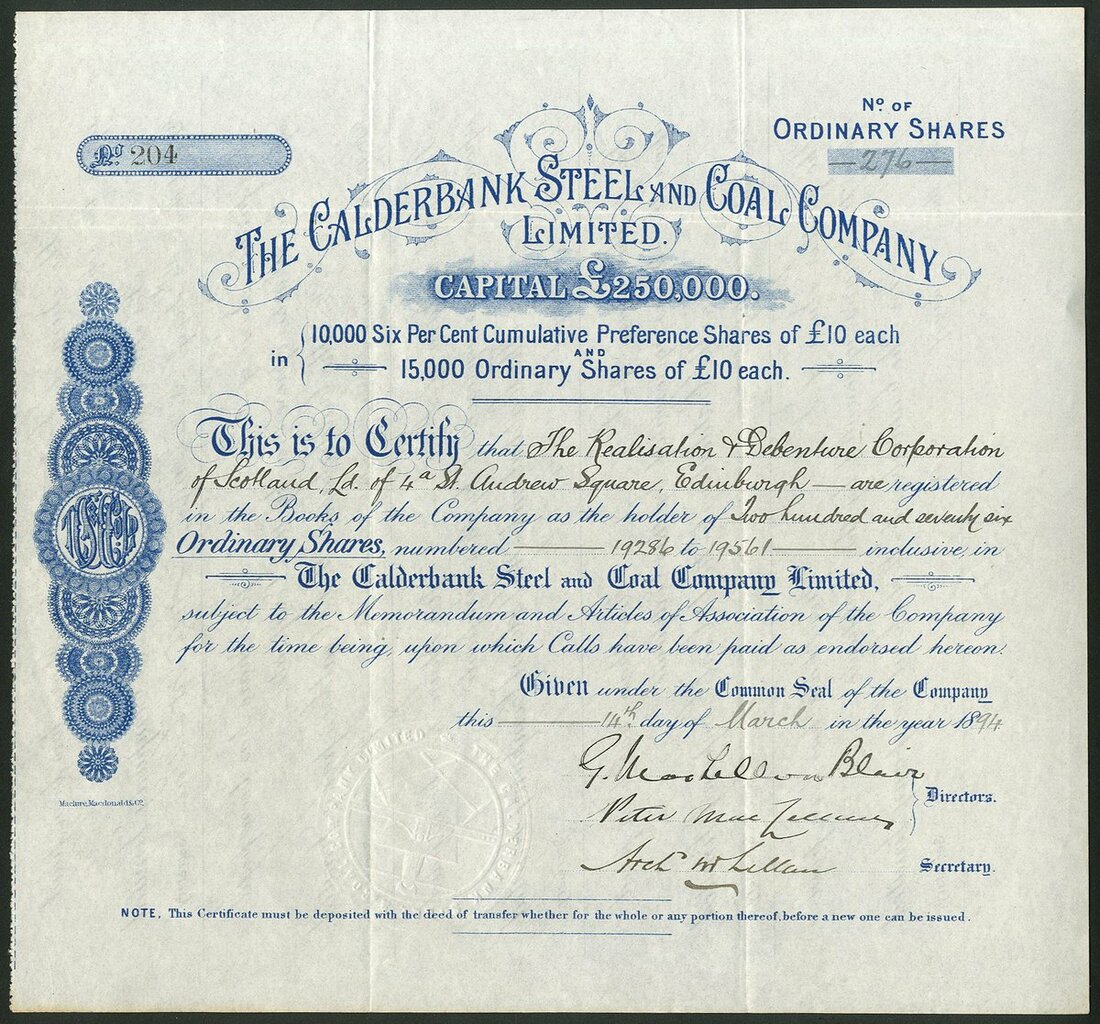 Nº OF
ORDINARY SHARES
276
Nº 204
THE CALDERBANK STEEL AND COAL COMPANY
LIMITED.
CAPITAL £250,000.
in { 10,000 Six Per Cent Cumulative Preference Shares of £10 each
AND
15,000 Ordinary Shares of £10 each.
This is to Certify that The Realisation & Debenture Corporation
of Scotland, Ld. of 4a St. Andrew Square, Edinburgh — are registered
in the Books of the Company as the holder of Two hundred and seventy six
Ordinary Shares, numbered — 19286 to 19561 — inclusive, in
The Calderbank Steel and Coal Company Limited,
subject to the Memorandum and Articles of Association of the Company
for the time being, upon which Calls have been paid as endorsed hereon.
Given under the Common Seal of the Company
this — 14th day of March in the year 1894
G. Blair
Peter
Directors.
Arch
Secretary.
Maclure, Macdonald & Co.
NOTE. This Certificate must be deposited with the deed of transfer whether for the whole or any portion thereof, before a new one can be issued.